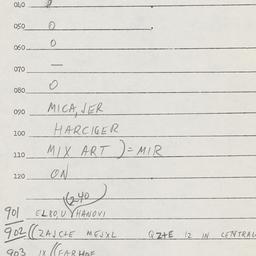 040
050 0
060 0
070 —
080 0
090 MICA, JER
100 HARCIGER
110 MIX ART ) = MIR
120 ON
(240
901 ELRO, U HANOVI
902 ((ZAJCTE MEJXL QZTE 12 IN CENTRAL
903 IX ((FARHOE